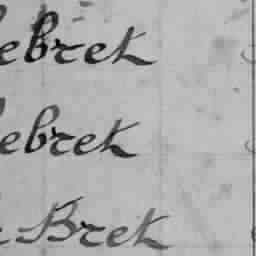 ebret
ebret
Bret